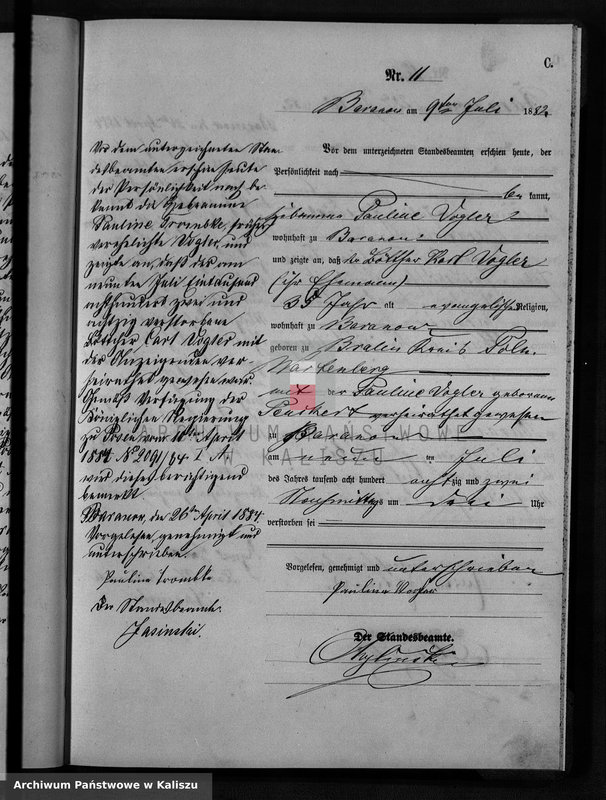 C.
Nr. 11
Baranow am 9ten Juli 1882
Vor dem unterzeichneten Standesbeamten erschien heute, der
Persönlichkeit nach
be kannt,
Pauline Vogler
wohnhaft zu Baranow
und zeigte an, daß der Böttcher Karl Vogler
(ihr Ehemann)
35 Jahr alt evangelischer Religion,
wohnhaft zu Baranow
geboren zu Bralin Kreis Poln.
Wartenberg
mit der Pauline Vogler geborenen
verheirathet gewesen
zu Baranow
am neun ten Juli
des Jahres tausend acht hundert achtzig und zwei
Nachmittags um drei Uhr
verstorben sei
Vorgelesen, genehmigt und unterschrieben
Pauline Vogler
Der Standesbeamte.
Vor dem unterzeichneten Stan
desbeamten erschien heute
der Persönlichkeit nach be
kannt die
Pauline Trombke, früher
verehelichte Vogler, und
zeigte an, daß der am
neunten Juli Eintausend
achthundert zwei und
achtzig verstorbene
Böttcher Carl Vogler mit
der Anzeigenden ver
heirathet gewesen war.
Gemäß Verfügung der
Königlichen Regierung
zu Posen vom April
1884 No 2091/84 I A.
wird dieses berichtigend
bemerkt.
Baranow, den 26ten April 1884.
Vorgelesen, genehmigt und
unterschrieben.
Paulina Trombke
Der Standesbeamte.
Jasinski.
ARCHIWUM PAŃSTWOWE
W KALISZU
Archiwum Państwowe w Kaliszu